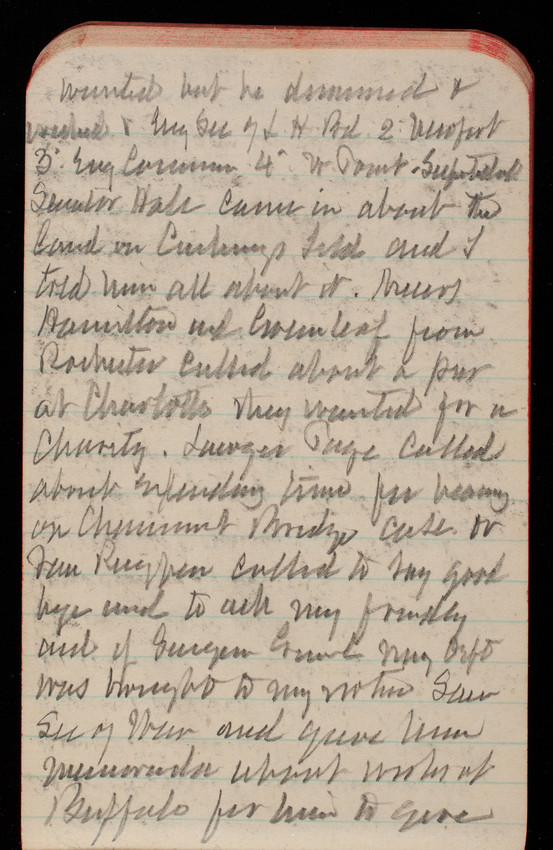 wanted but he demurred &
& Eng Sec of L H Bd 2. Newport
3. Eng Commn 4" W Point
Senator Hale came in about the
Land on Cushings Isld and I
told him all about it. Messrs
Hamilton and Greenleaf from
Rochester called about a pier
at Charlotte they wanted for a
Charity. Lawyer Page called
about extending time for hearing
on Bridge case. Dr
Van Ruypen called to say good
bye and to ask my friendly
aid if Surgeon Genl Navy Dept
was brought to my notice Saw
Sec of War and gave him
memoranda about works at
Buffalo for him to give